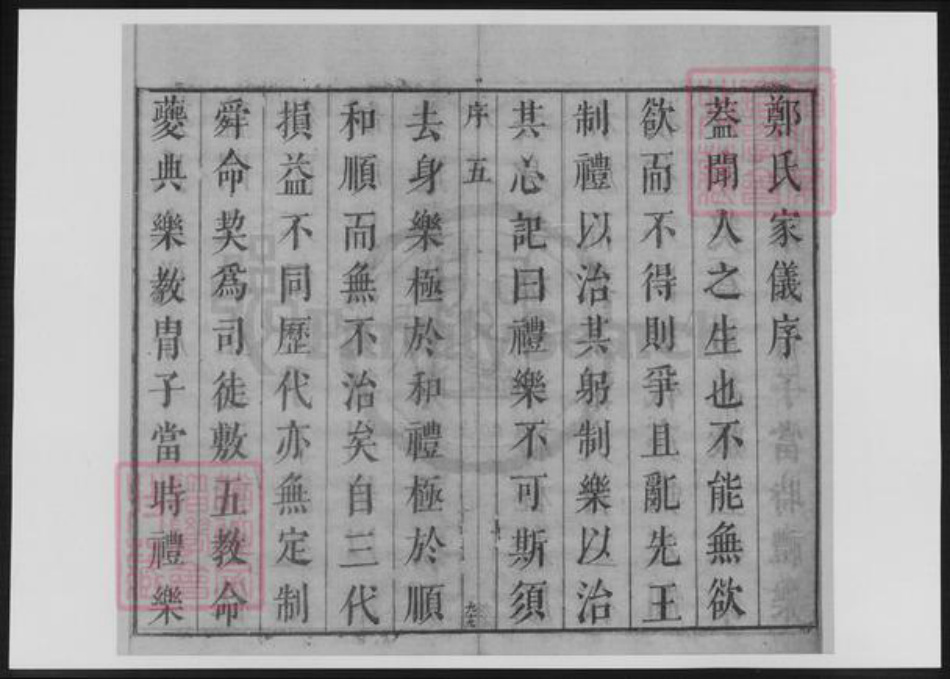 鄭氏家儀序
葢聞人之生也不能無欲
欲而不得則爭且亂先王
制禮以治其躬制樂以治
其心記曰禮樂不可斯須
序 五
去身樂極於和禮極於順
和順而無不治矣自三代
損益不同歷代亦無定制
舜命契爲司徒敷五教命
夔典樂教胄子當時禮樂